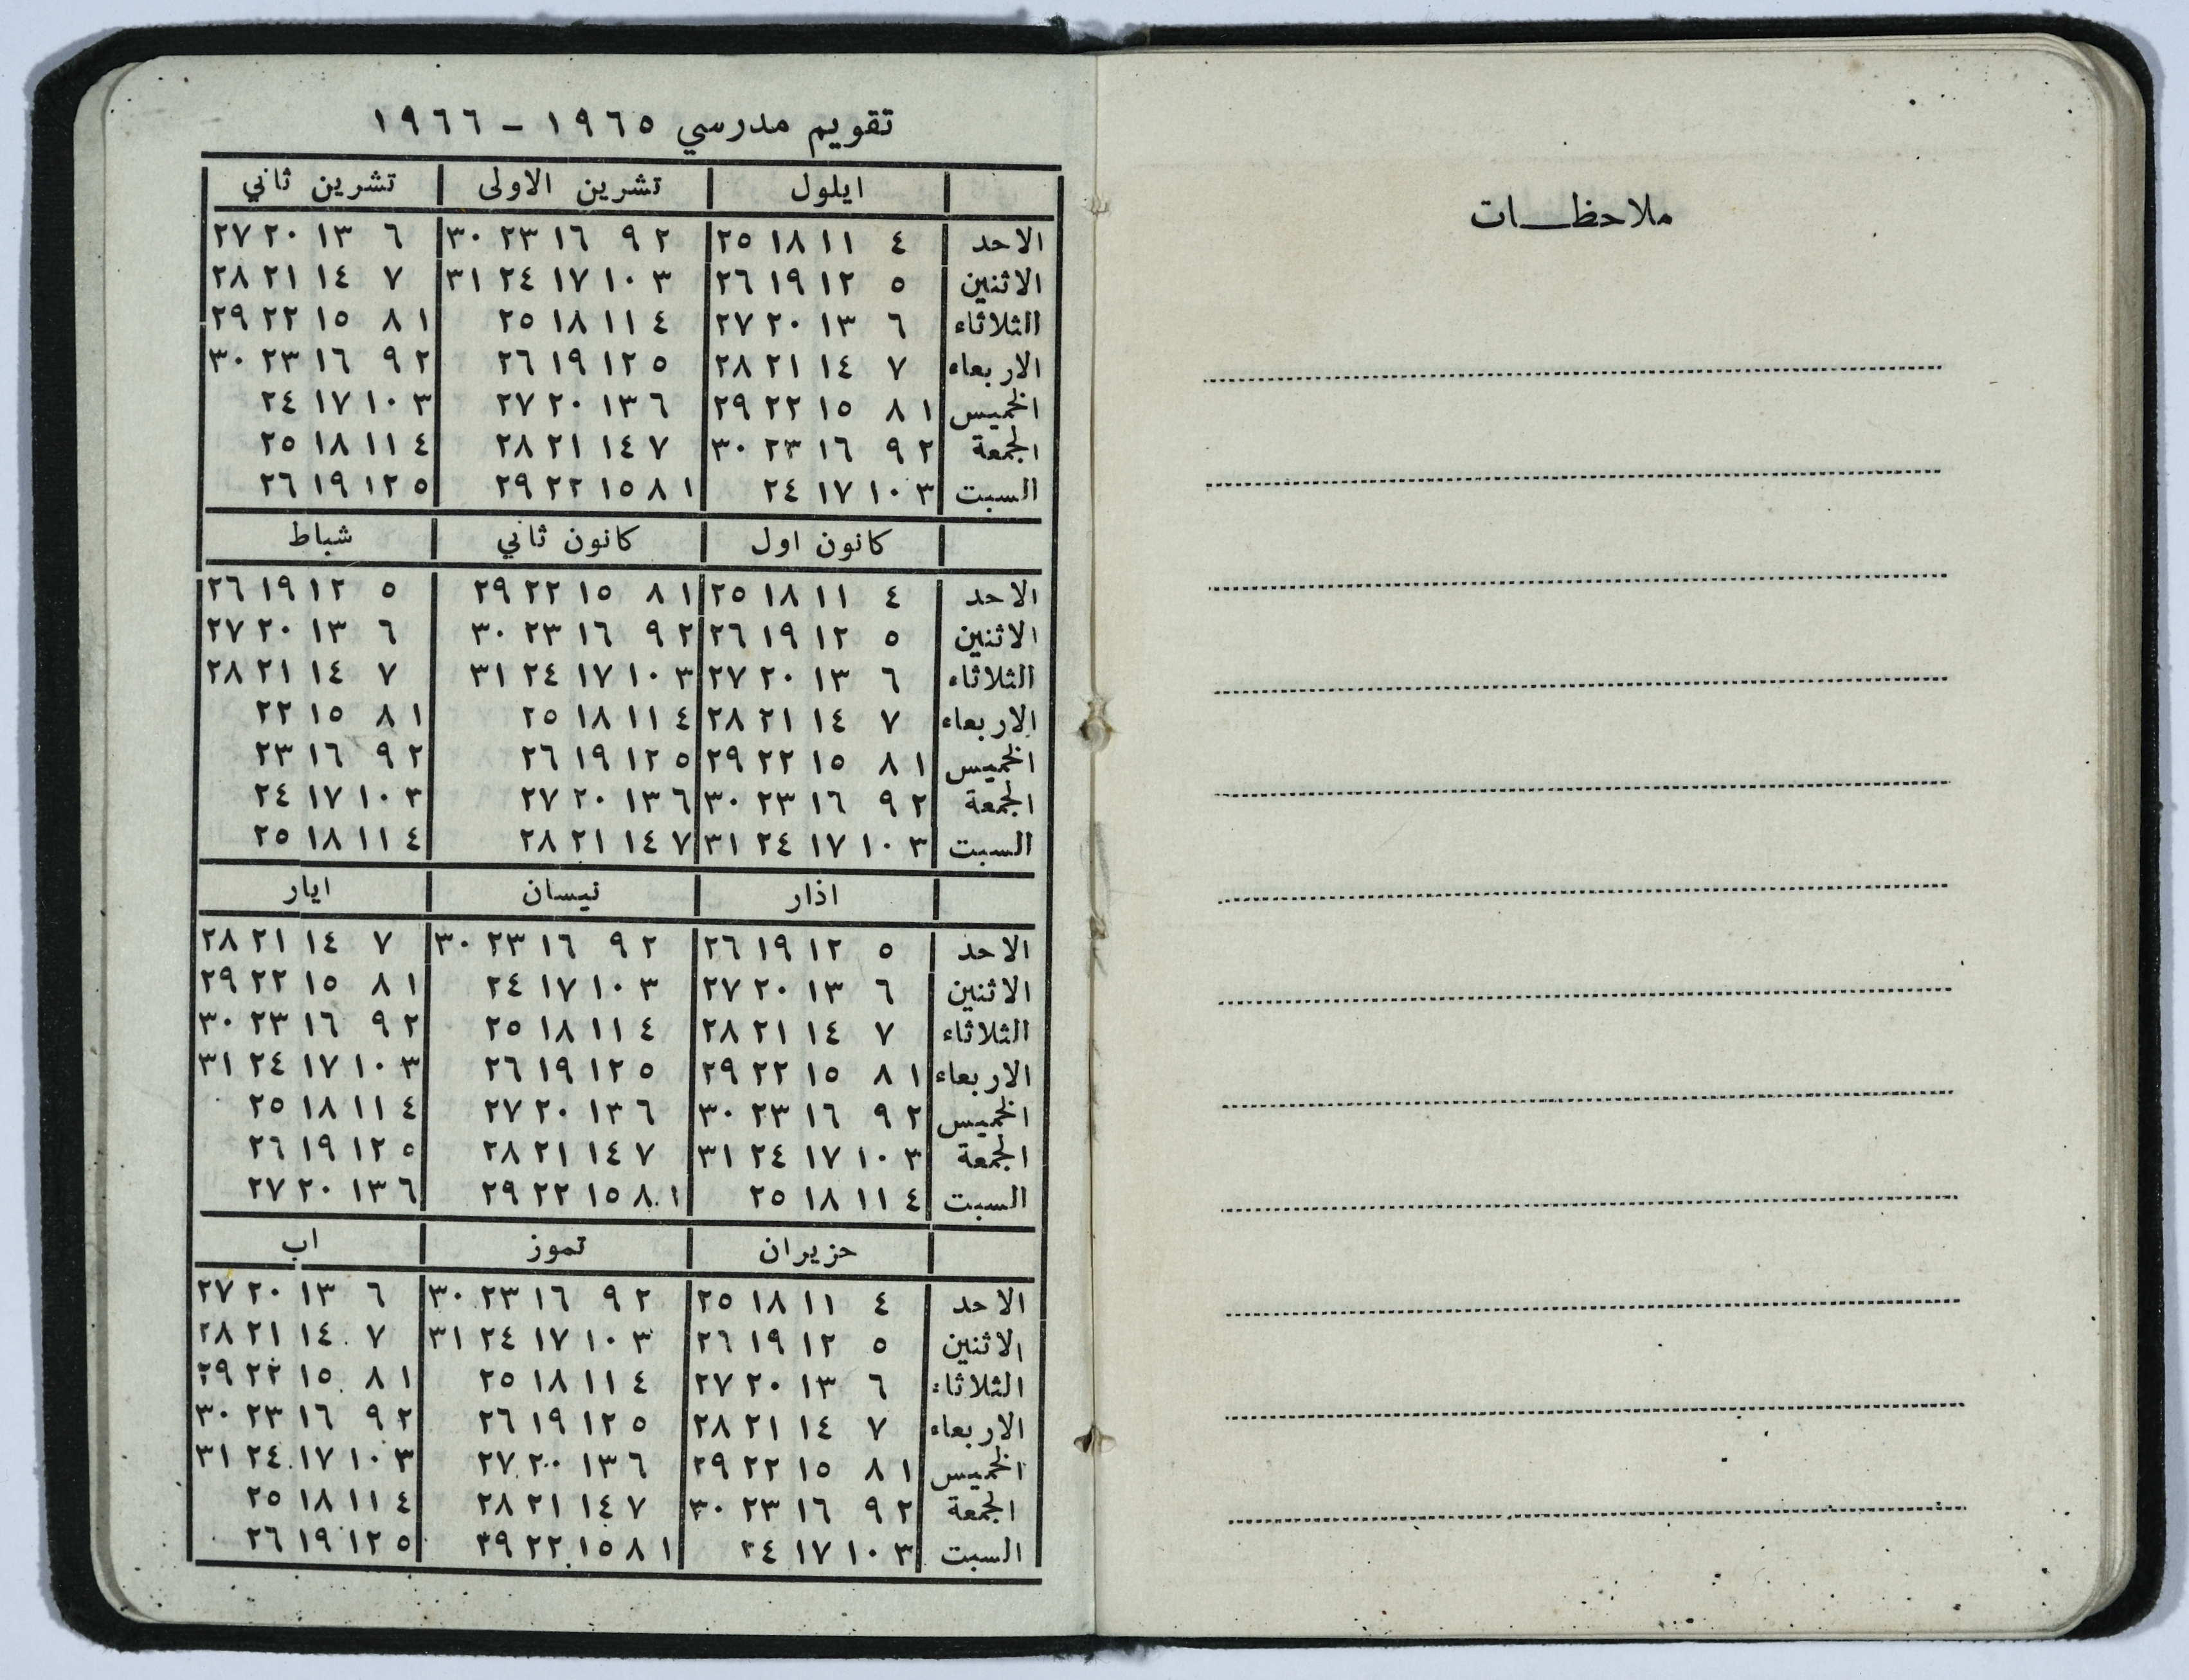 ملاحظـــات
تقويم مدرسي ١٩٦٥ - ١٩٦٦
ايلول تشرين الاولى تشرين ثاني
الاحد ٤ ١١ ١٨ ٢٥ ٢ ٩ ١٦ ٢٣ ٣٠ ٦ ١٣ ٢٠ ٢٧
الاثنين ٥ ١٢ ١٩ ٢٦ ٣ ١٠ ١٧ ٢٤ ٣١ ٧ ١٤ ٢١ ٢٨
الثلاثاء ٦ ١٣ ٢٠ ٢٧ ٤ ١١ ١٨ ٢٥ ١ ٨ ١٥ ٢٢ ٢٩
الاربعاء ٧ ١٤ ٢١ ٢٨ ٥ ١٢ ١٩ ٢٦ ٢ ٩ ١٦ ٢٣ ٣٠
الخميس ١ ٨ ١٥ ٢٢ ٢٩ ٦ ١٣ ٢٠ ٢٧ ٣ ١٠ ١٧ ٢٤
الجمعة ٢ ٩ ١٦ ٢٣ ٣٠ ٧ ١٤ ٢١ ٢٨ ٤ ١١ ١٨ ٢٥
السبت ٣ ١٠ ١٧ ٢٤ ١ ٨ ١٥ ٢٢ ٢٩ ٥ ١٢ ١٩ ٢٦
كانون اول كانون ثاني شباط
الاحد ٤ ١١ ١٨ ٢٥ ١ ٨ ١٥ ٢٢ ٢٩ ٥ ١٢ ١٩ ٢٦
الاثنين ٥ ١٢ ١٩ ٢٦ ٢ ٩ ١٦ ٢٣ ٣٠ ٦ ١٣ ٢٠ ٢٧
الثلاثاء ٦ ١٣ ٢٠ ٢٧ ٣ ١٠ ١٧ ٢٤ ٣١ ٧ ١٤ ٢١ ٢٨
الاربعاء ٧ ١٤ ٢١ ٢٨ ٤ ١١ ١٨ ٢٥ ١ ٨ ١٥ ٢٢
الخميس ١ ٨ ١٥ ٢٢ ٢٩ ٥ ١٢ ١٩ ٢٦ ٢ ٩ ١٦ ٢٣
الجمعة ٢ ٩ ١٦ ٢٣ ٣٠ ٦ ١٣ ٢٠ ٢٧ ٣ ١٠ ١٧ ٢٤
السبت ٣ ١٠ ١٧ ٢٤ ٣١ ٧ ١٤ ٢١ ٢٨ ٤ ١١ ١٨ ٢٥
اذار نيسان ايار
الاحد ٥ ١٢ ١٩ ٢٦ ٢ ٩ ١٦ ٢٣ ٣٠ ٧ ١٤ ٢١ ٢٨
الاثنين ٦ ١٣ ٢٠ ٢٧ ٣ ١٠ ١٧ ٢٤ ١ ٨ ١٥ ٢٢ ٢٩
الثلاثاء ٧ ١٤ ٢١ ٢٨ ٤ ١١ ١٨ ٢٥ ٢ ٩ ١٦ ٢٣ ٣٠
الاربعاء ١ ٨ ١٥ ٢٢ ٢٩ ٥ ١٢ ١٩ ٢٦ ٣ ١٠ ١٧ ٢٤ ٣١
الخميس ٢ ٩ ١٦ ٢٣ ٣٠ ٦ ١٣ ٢٠ ٢٧ ٤ ١١ ١٨ ٢٥
الجمعة ٣ ١٠ ١٧ ٢٤ ٣١ ٧ ١٤ ٢١ ٢٨ ٥ ١٢ ١٩ ٢٦
السبت ٤ ١١ ١٨ ٢٥ ١ ٨ ١٥ ٢٢ ٢٩ ٦ ١٣ ٢٠ ٢٧
حزيران تموز اب
الاحد ٤ ١١ ١٨ ٢٥ ٢ ٩ ١٦ ٢٣ ٣٠ ٦ ١٣ ٢٠ ٢٧
الاثنين ٥ ١٢ ١٩ ٢٦ ٣ ١٠ ١٧ ٢٤ ٣١ ٧ ١٤ ٢١ ٢٨
الثلاثاء ٦ ١٣ ٢٠ ٢٧ ٤ ١١ ١٨ ٢٥ ١ ٨ ١٥ ٢٢ ٢٩
الاربعاء ٧ ١٤ ٢١ ٢٨ ٥ ١٢ ١٩ ٢٦ ٢ ٩ ١٦ ٢٣ ٣٠
الخميس ١ ٨ ١٥ ٢٢ ٢٩ ٦ ١٣ ٢٠ ٢٧ ٣ ١٠ ١٧ ٢٤ ٣١
الجمعة ٢ ٩ ١٦ ٢٣ ٣٠ ٧ ١٤ ٢١ ٢٨ ٤ ١١ ١٨ ٢٥
السبت ٣ ١٠ ١٧ ٢٤ ١ ٨ ١٥ ٢٢ ٢٩ ٥ ١٢ ١٩ ٢٦